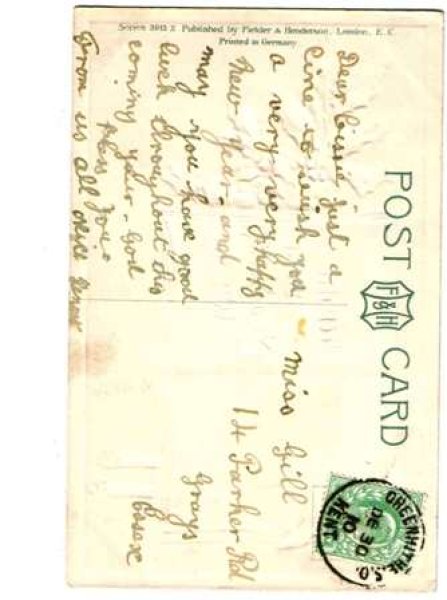 Series 3943 Published by Fielder & Henderson, London, E. C.
Printed in Germany
POST CARD
F&H
Dear Cissie just a
line to wish you
a very very happy
New year. and
may you have good
luck throughout this
coming year. God
bless you.
From us all
Miss Gill
14 Parker Rd
Grays
Essex
GREENHITHE S.O.
DE 30
10
KENT